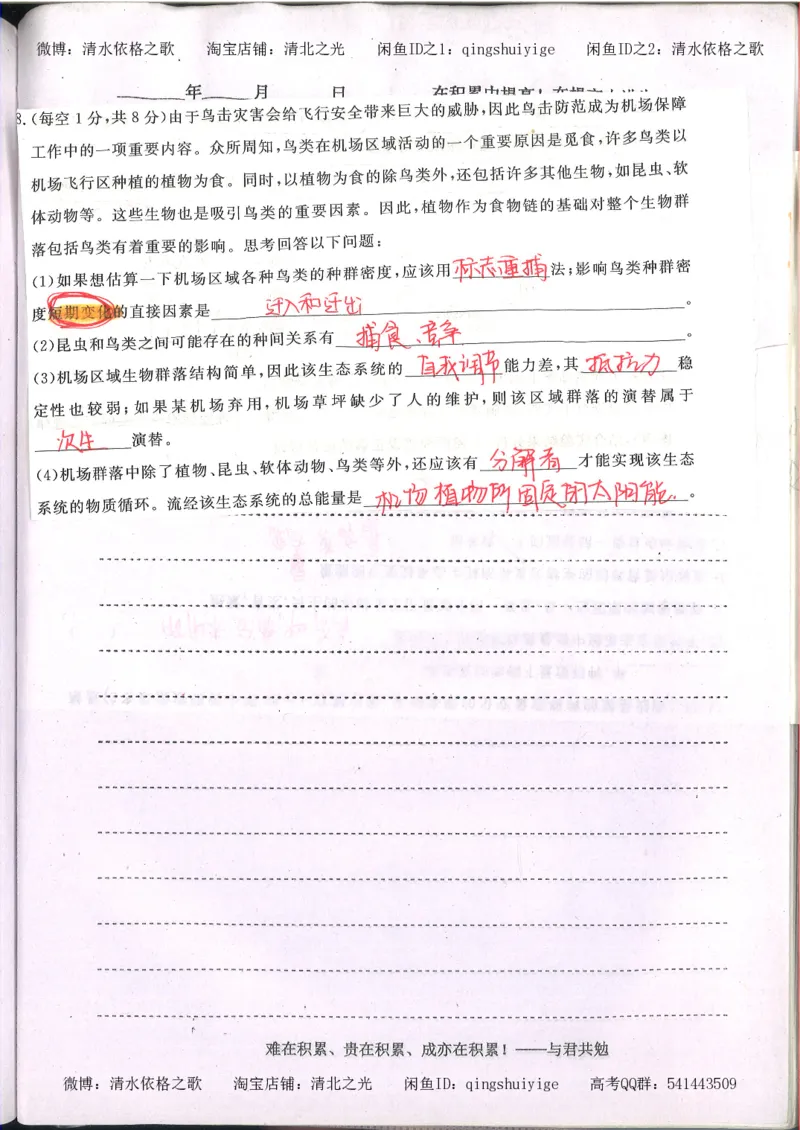 微博：清水依格之歌 淘宝店铺：清北之光 闲鱼ID之1：qingshuiyige 闲鱼ID之2：清水依格之歌
年 月 日
8.(每空1分,共8分)由于鸟击灾害会给飞行安全带来巨大的威胁,因此鸟击防范成为机场保障
工作中的一项重要内容。众所周知,鸟类在机场区域活动的一个重要原因是觅食,许多鸟类以
机场飞行区种植的植物为食。同时,以植物为食的除鸟类外,还包括许多其他生物,如昆虫、软
体动物等。这些生物也是吸引鸟类的重要因素。因此,植物作为食物链的基础对整个生物群
落包括鸟类有着重要的影响。思考回答以下问题：
(1)如果想估算一下机场区域各种鸟类的种群密度,应该用标志重捕法;影响鸟类种群密
度短期变化的直接因素是 迁入和迁出 。
(2)昆虫和鸟类之间可能存在的种间关系有 捕食、竞争 。
(3)机场区域生物群落结构简单,因此该生态系统的 自我调节 能力差,其 抵抗力 稳
定性也较弱;如果某机场弃用,机场草坪缺少了人的维护,则该区域群落的演替属于
次生 演替。
(4)机场群落中除了植物、昆虫、软体动物、鸟类等外,还应该有 分解者 才能实现该生态
系统的物质循环。流经该生态系统的总能量是 机场植物所固定的太阳能 。
难在积累、贵在积累、成亦在积累！——与君共勉
微博：清水依格之歌 淘宝店铺：清北之光 闲鱼ID：qingshuiyige 高考QQ群：541443509